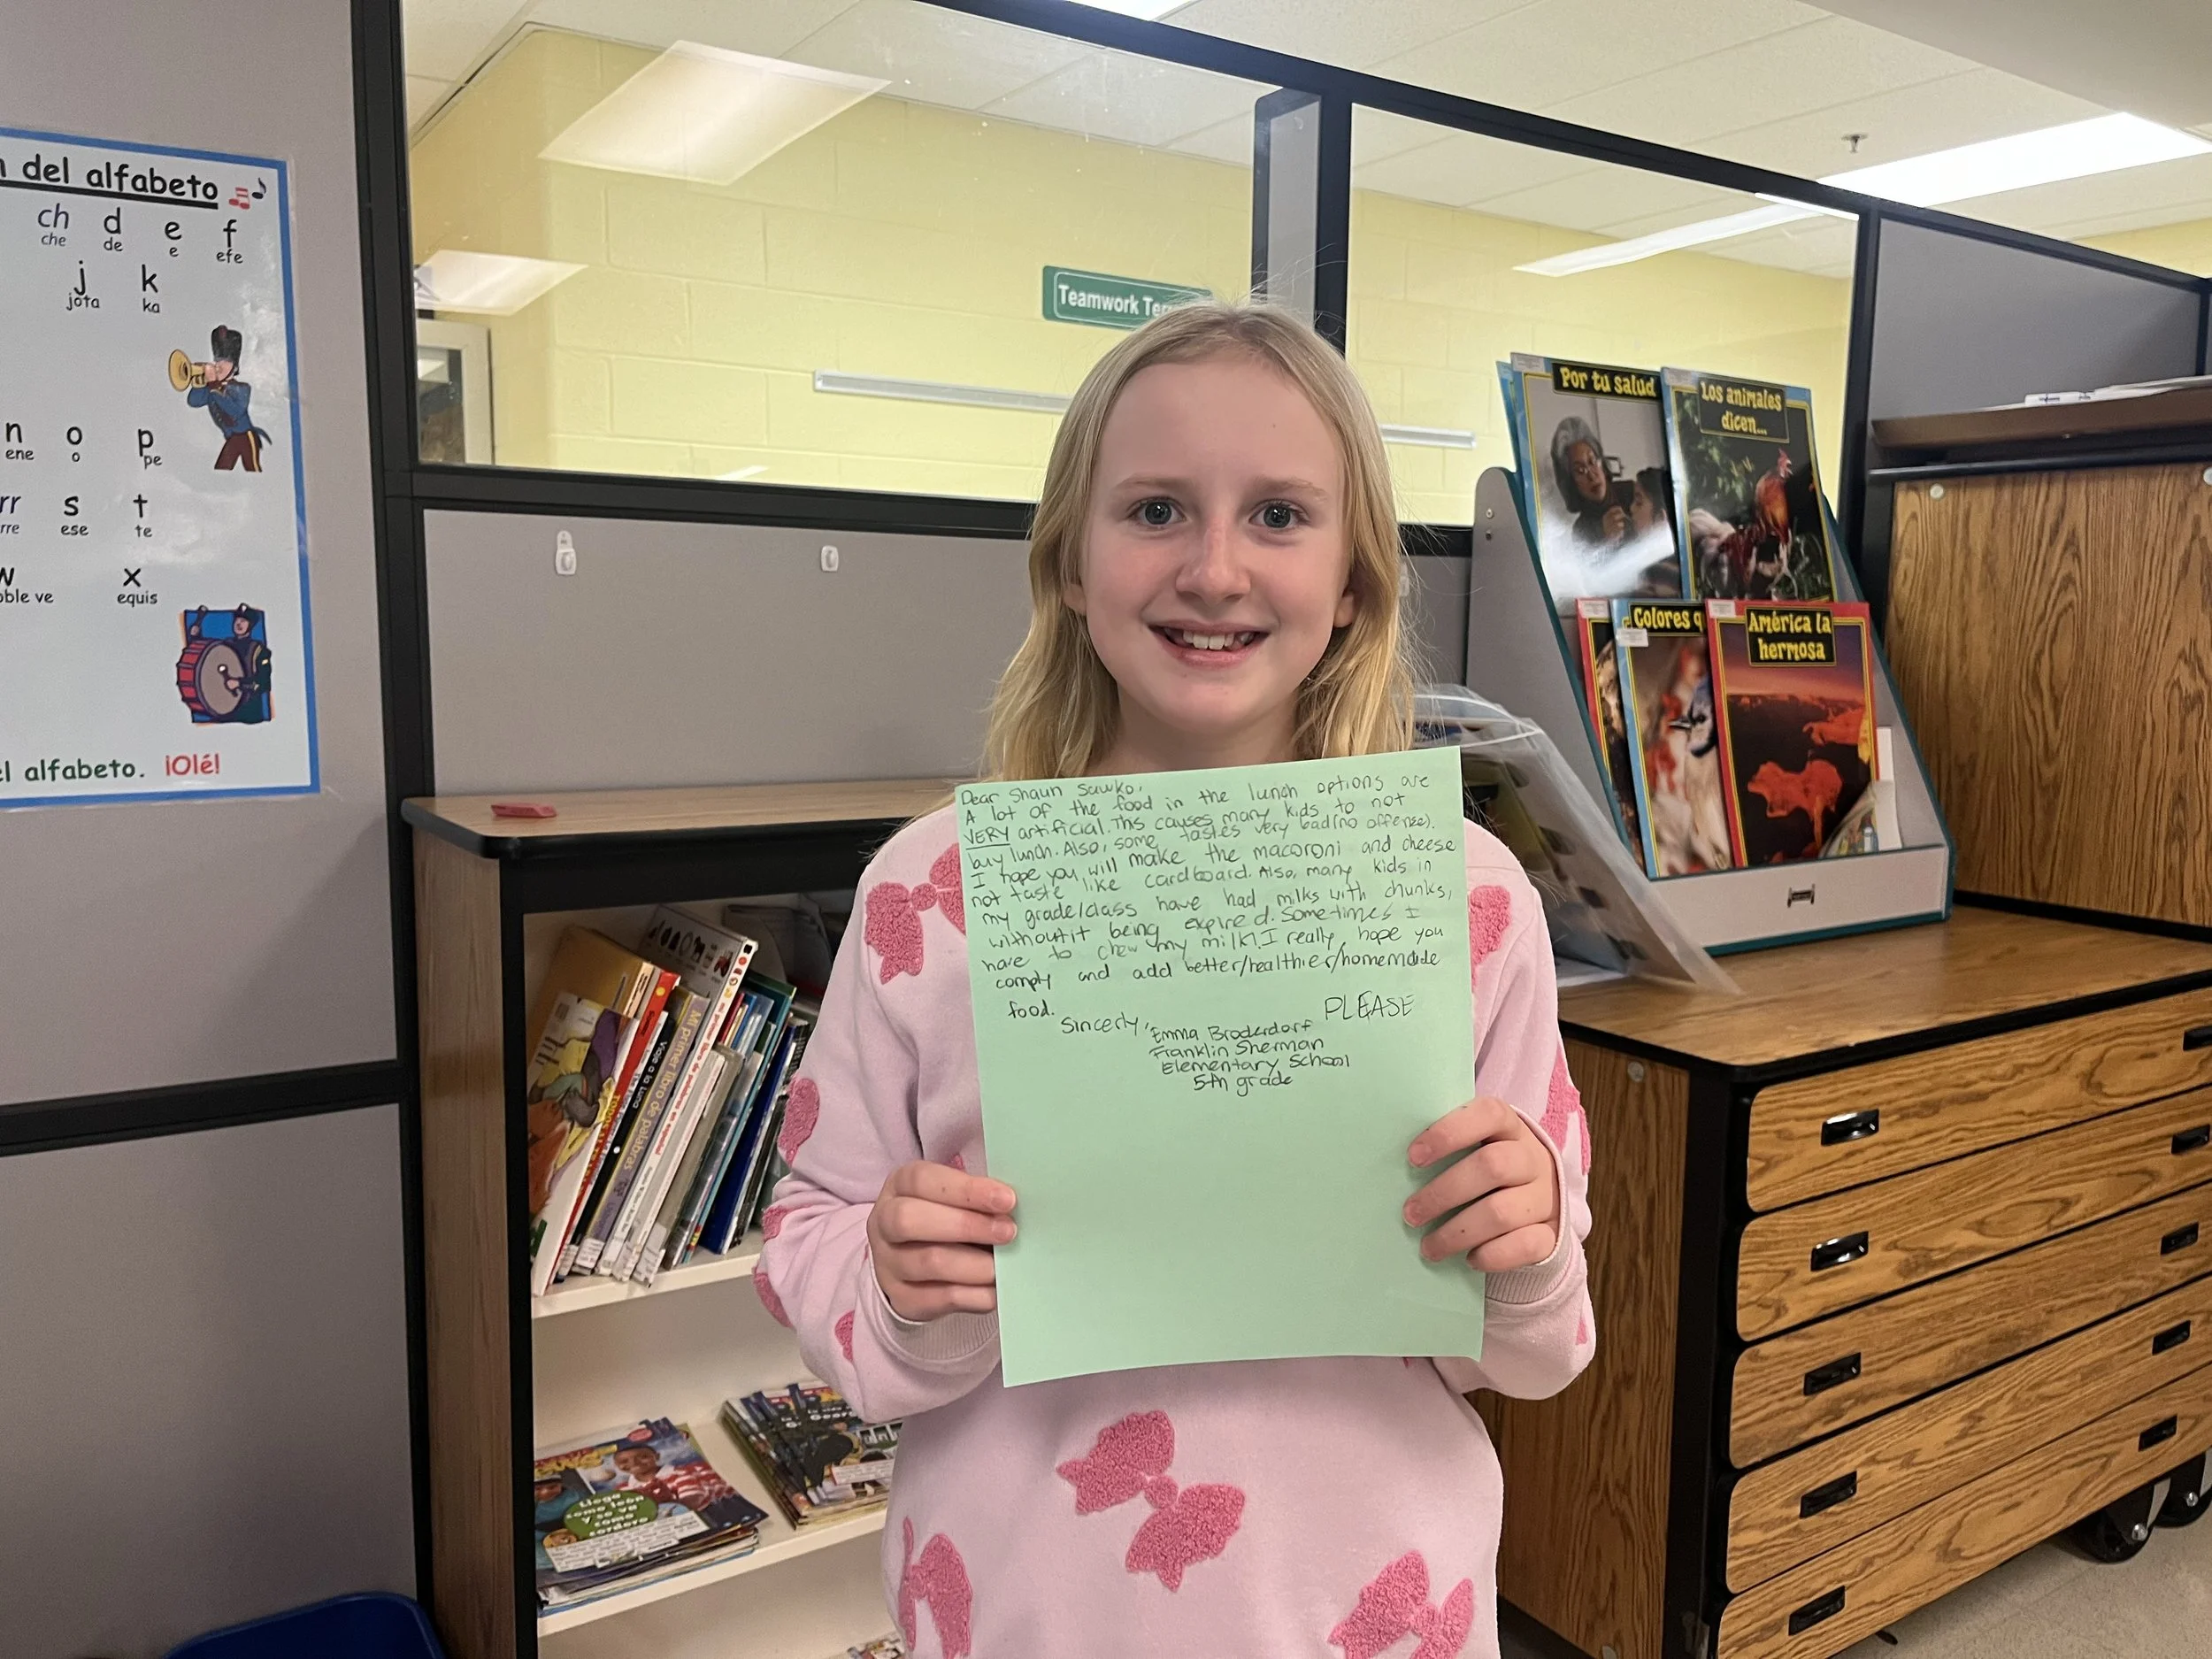 del alfabeto
ch d e f
che de e efe
j k
jota ka
n o p
ene o pe
rr s t
rre ese te
x
ble ve equis
el alfabeto. ¡Olé!
Teamwork
Por tu salud
Los animales
dicen...
Colores
América la
hermosa
Dear Shaun Sawko,
A lot of the food in the lunch options are
VERY artificial. This causes many kids to not
buy lunch. Also, some tastes very bad(no offense).
I hope you will make the macoroni and cheese
not taste like cardboard. Also, many kids in
my grade/class have had milks with chunks,
without it being expired. Sometimes I
have to chew my milk! I really hope you
comply and add better/healthier/homemade
food. PLEASE
Sincerly, Emma Broderdorf
Franklin Sherman
Elementary School
5th grade
Mi primer libro de palabras
Viaje a la luna
Llega
como león
y se va
como
cordero